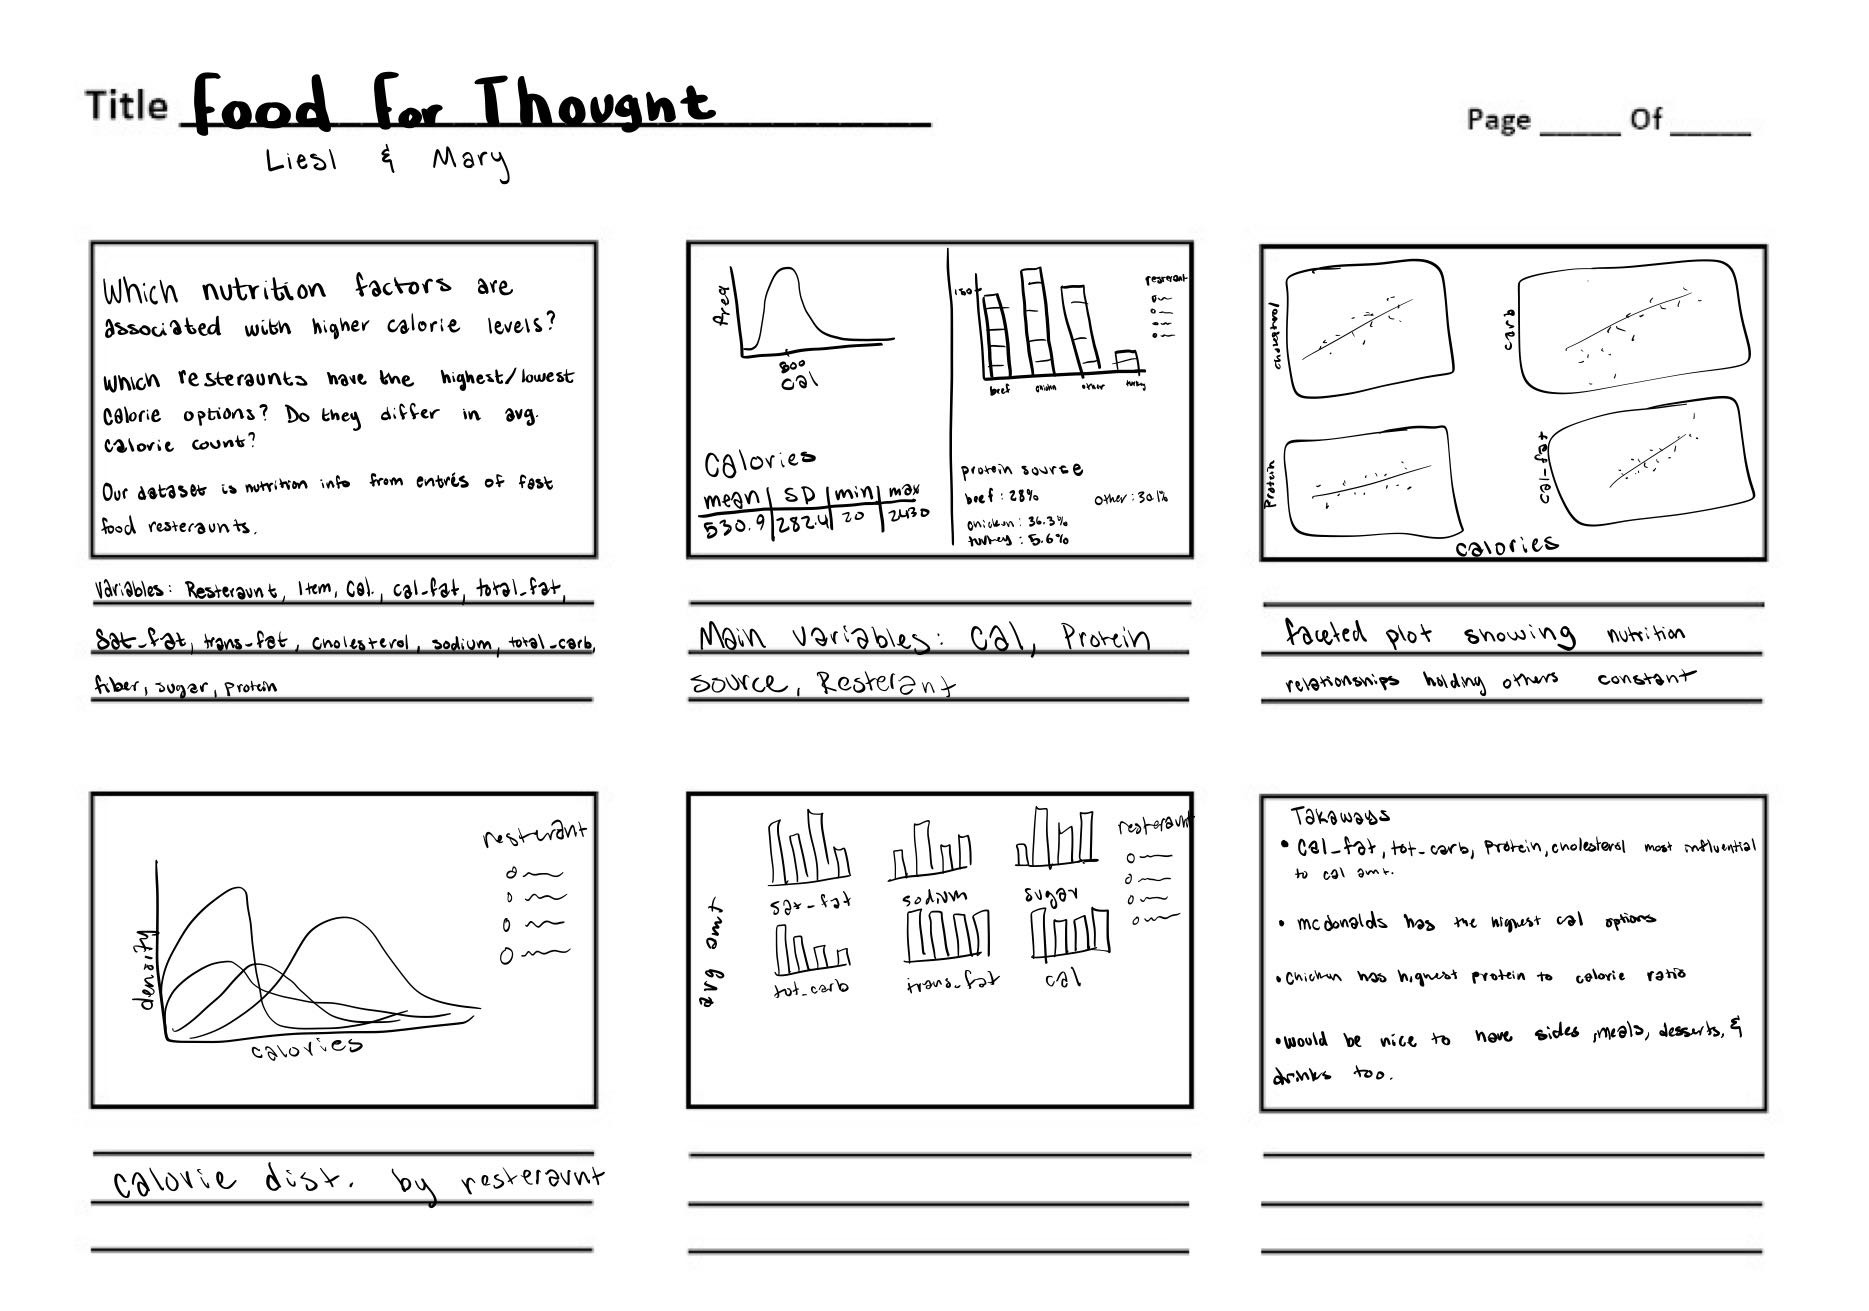 Title Food For Thought
Page _____ Of _____
Liesl & Mary
Which nutrition factors are
associated with higher calorie levels?
Which resteraunts have the highest/lowest
calorie options? Do they differ in avg.
calorie count?
Our dataset is nutrition info from entrés of fast
food resteraunts.
Variables: Resteraunt, Item, Cal., cal-fat, total_fat,
Sat_fat, trans-fat, cholesterol, sodium, total_carb,
fiber, sugar, protein
Area
800
cal
Calories
mean | SD | min | max
530.9 | 282.4 | 20 | 2430
150
resterant
beef chicken other turkey
protein source
beef : 28% other : 30.1%
chicken : 36.3%
turkey : 5.6%
Main variables: Cal, Protein
source, Resterant
cholesterol
carb
Protein
cal-fat
calories
faceted plot showing nutrition
relationships holding others constant
resterant
density
calories
calorie dist. by resteraunt
resteraunt
avg amt
sat-fat sodium sugar
tot_carb trans_fat cal
Takaways
• Cal_fat, tot_carb, Protein, cholesterol most influential
to cal amt.
• mcdonalds has the highest cal options
• Chicken has highest protein to calorie ratio
• would be nice to have sides, meals, desserts, &
drinks too.